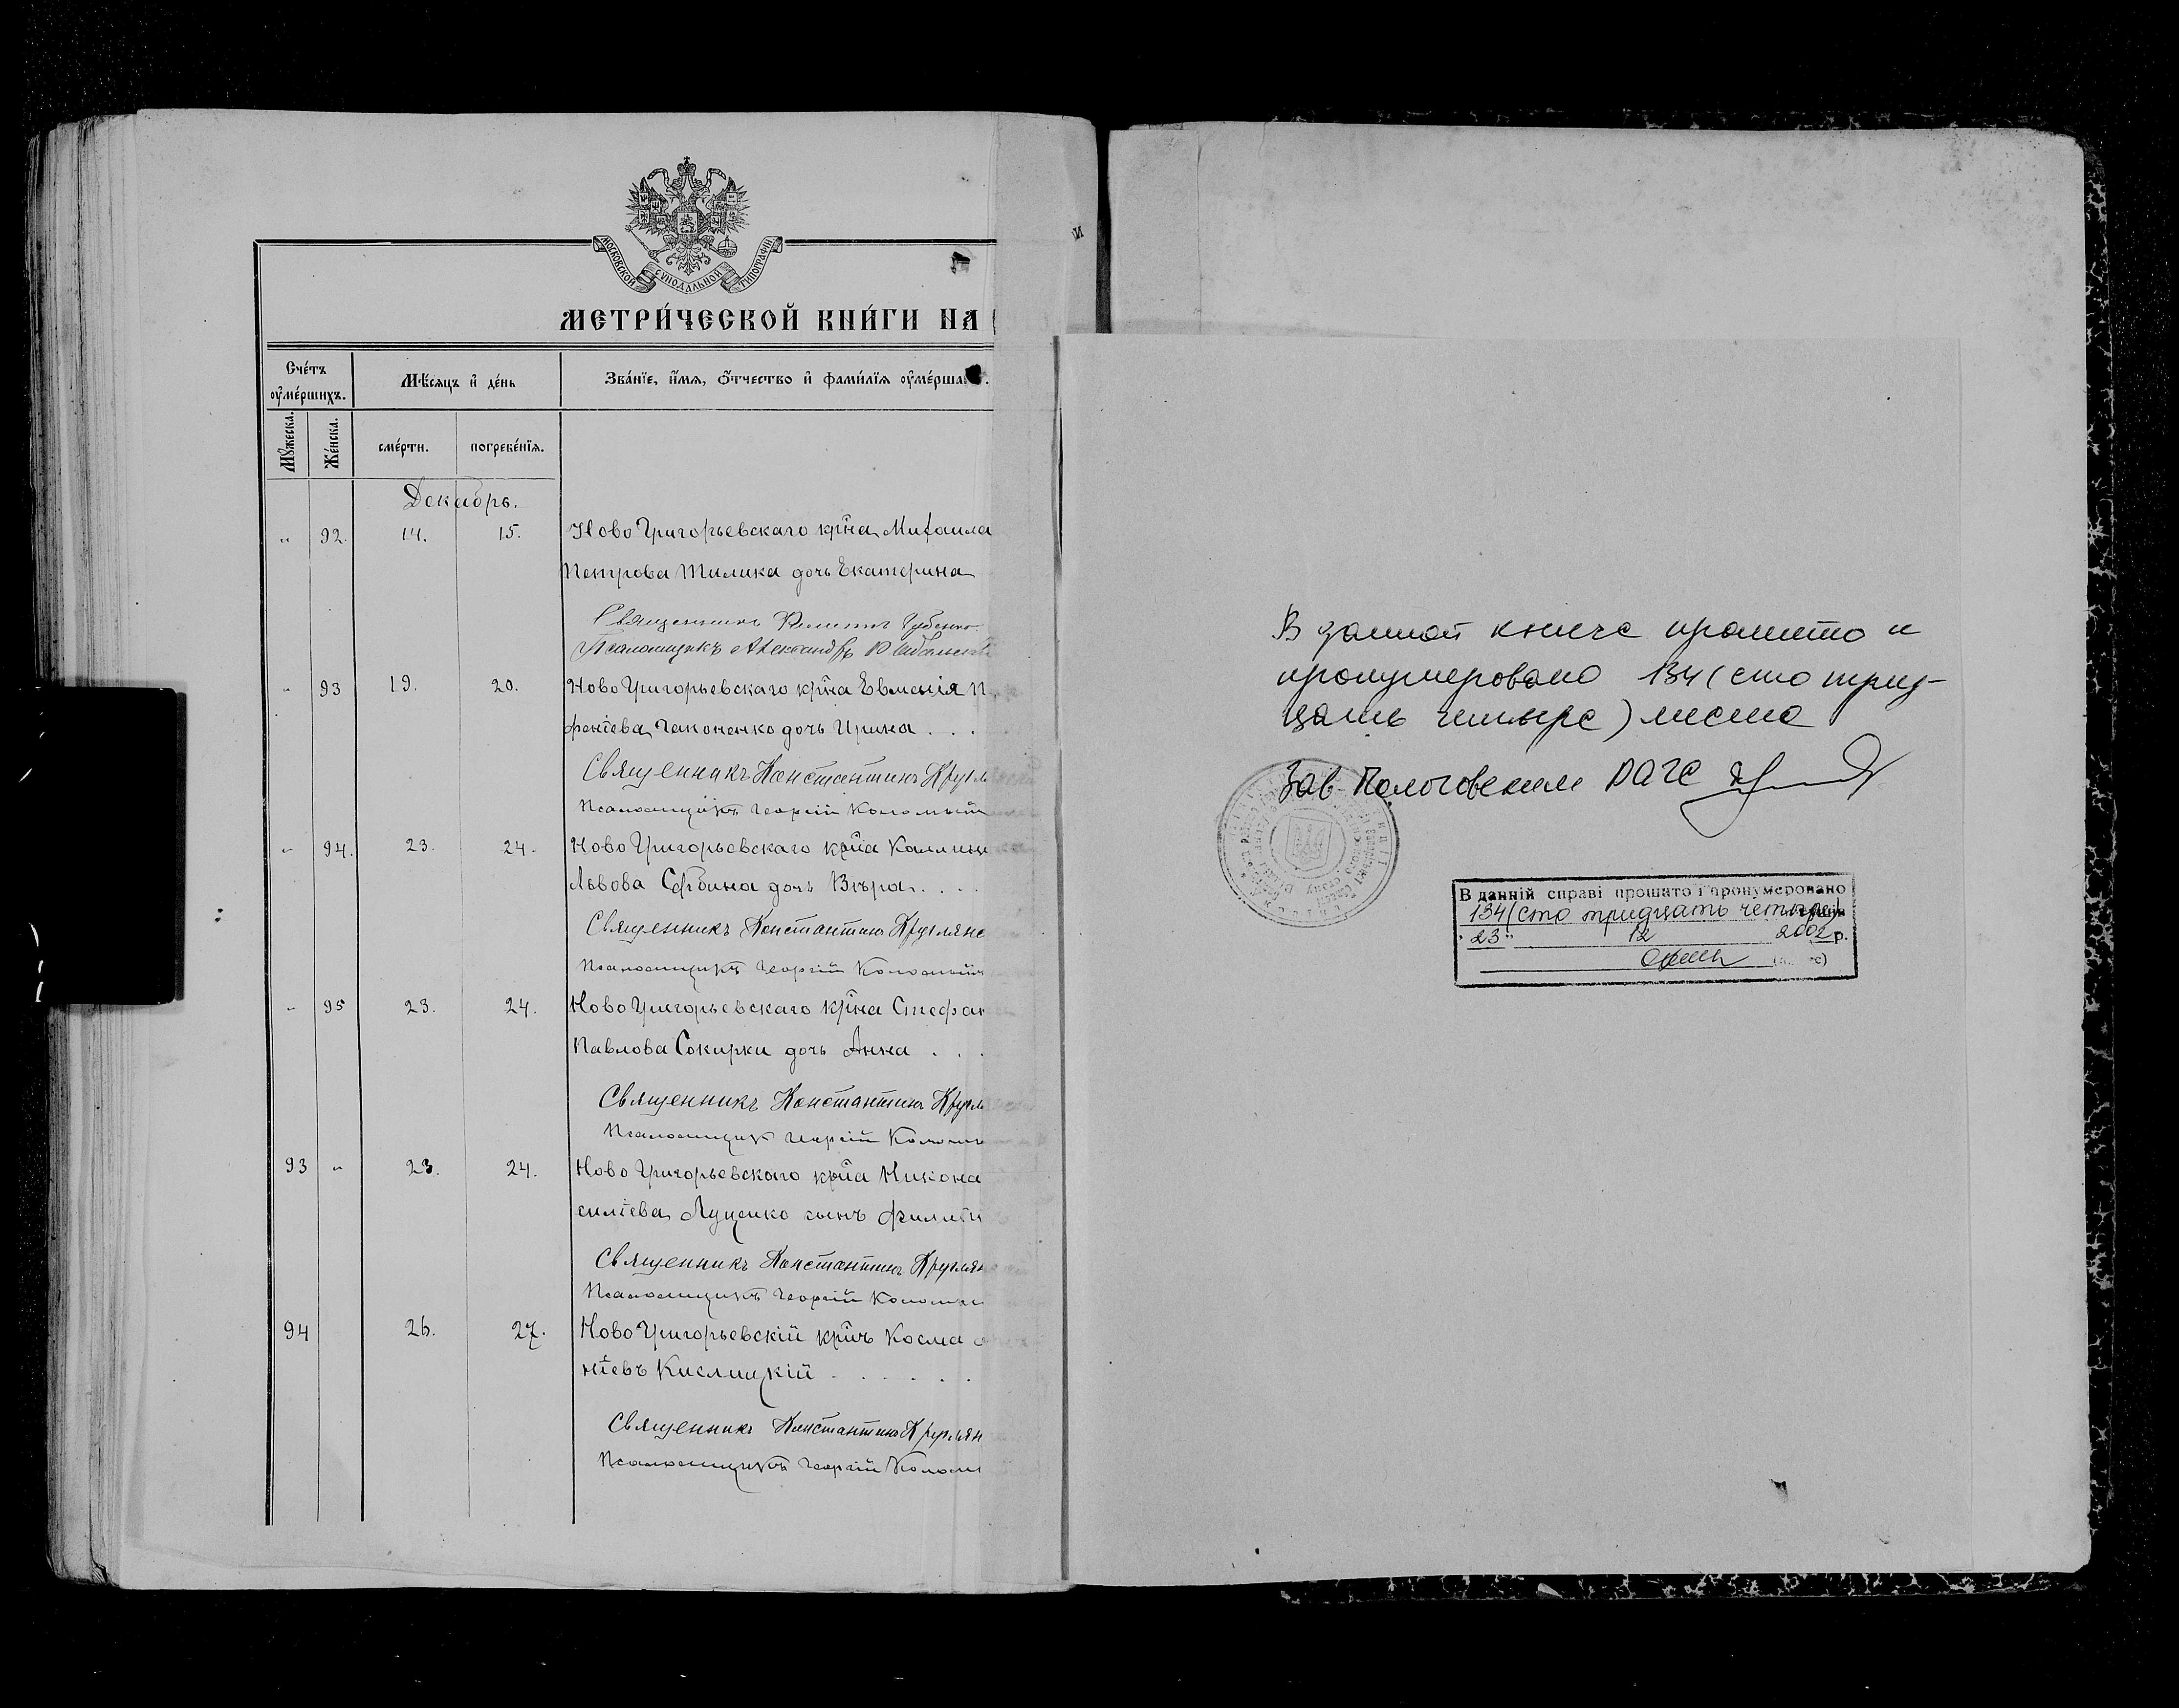 МОСКОВСКОЙ СѴНОДАЛЬНОЙ ТИПОГРАФІИ
МЕТРИ́ЧЕСКОЙ КНИ́ГИ НА
Сче́тъ оу҆ме́ршихъ.
Мѣ́сяцъ и҆ де́нь
Зва́нїе, и҆́мя, ѻ҆́тчество и҆ фами́лїя оу҆ме́рша
Мꙋ́жеска.
Же́нска.
сме́рти.
погребе́нїя.
Декабрь.
„ 92. 14. 15. Ново Григорьевскаго кр̃на Михаила
Петрова Тилика дочь Екатерина
Священникъ Филиппъ Губенко
Псаломщикъ Александръ
„ 93 19. 20. Ново Григорьевскаго кр̃на Евменія П
феніева Гапоненко дочь Ирина . . .
Священникъ Константинъ Кругл
Псаломщикъ Георгій Коломый
„ 94. 23. 24. Ново Григорьевскаго кр̃на
Львова Сербина дочь Вѣра . . . .
Священникъ Константинъ Круглянс
Псаломщикъ Георгій Коломый
„ 95 23. 24. Ново Григорьевскаго кр̃на Стефан
Павлова Сокирки дочь Анна . . .
Священникъ Константинъ Кругл
Псаломщикъ Георгій Коломы
93 „ 23. 24. Ново Григорьевскаго кр̃на Никона
силіева Луценко сынъ Филипп
Священникъ Константинъ Круглян
Псаломщикъ Георгій Коломы
94 26. 27. Ново Григорьевскій кр̃нъ Косма
ніевъ Кислицкій . . . . . .
Священникъ Константинъ Круглян
Псаломщикъ Георгій Колом
и
В данной книге прошито и
пронумеровано 134 (сто трид-
цать четыре) листа
Зав Пологовским РАГС
В данній справі прошито і пронумеровано
134 (сто тридцать четыре)
" 23 " 12 2002 р.